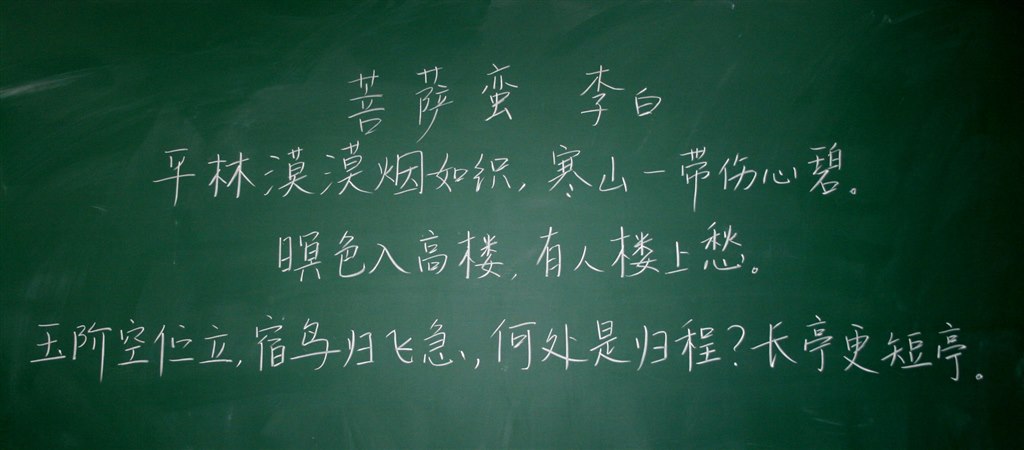 菩萨蛮 李白
平林漠漠烟如织，寒山一带伤心碧。
暝色入高楼，有人楼上愁。
玉阶空伫立，宿鸟归飞急，何处是归程？长亭更短亭。